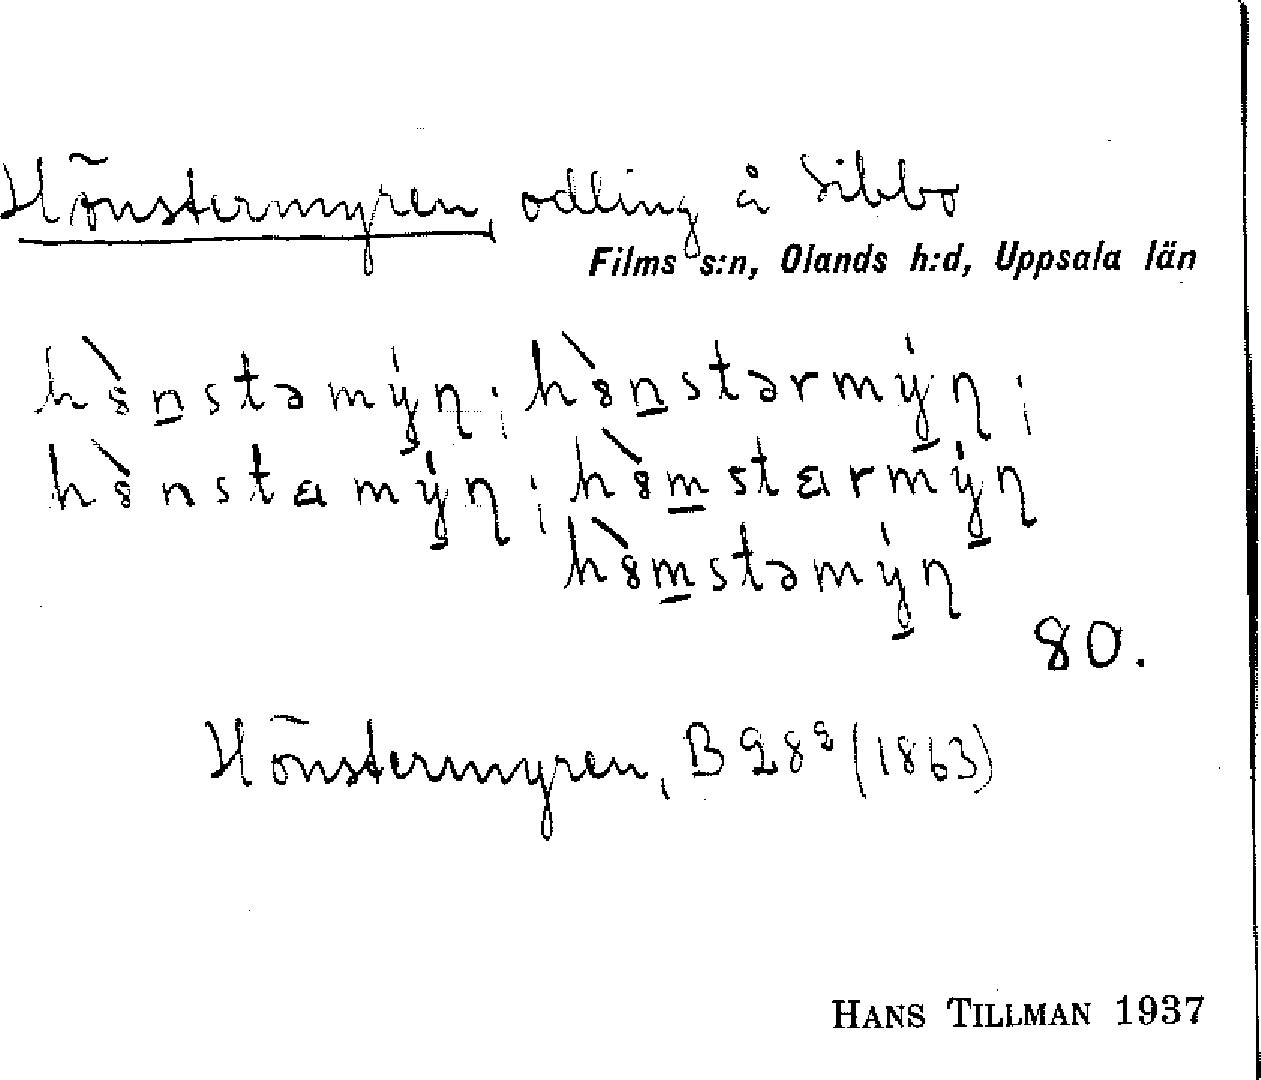 Hönstermyren, odling å Sibbo
Films s:n, Olands h:d, Uppsala län
hö̀nstəmýn; hö̀nstərmýn;
hö̀nstamýn; hö̀mstarmýn
hö̀mstəmýn
80.
Hönstermyren, B 28² (1863)
HANS TILLMAN 1937